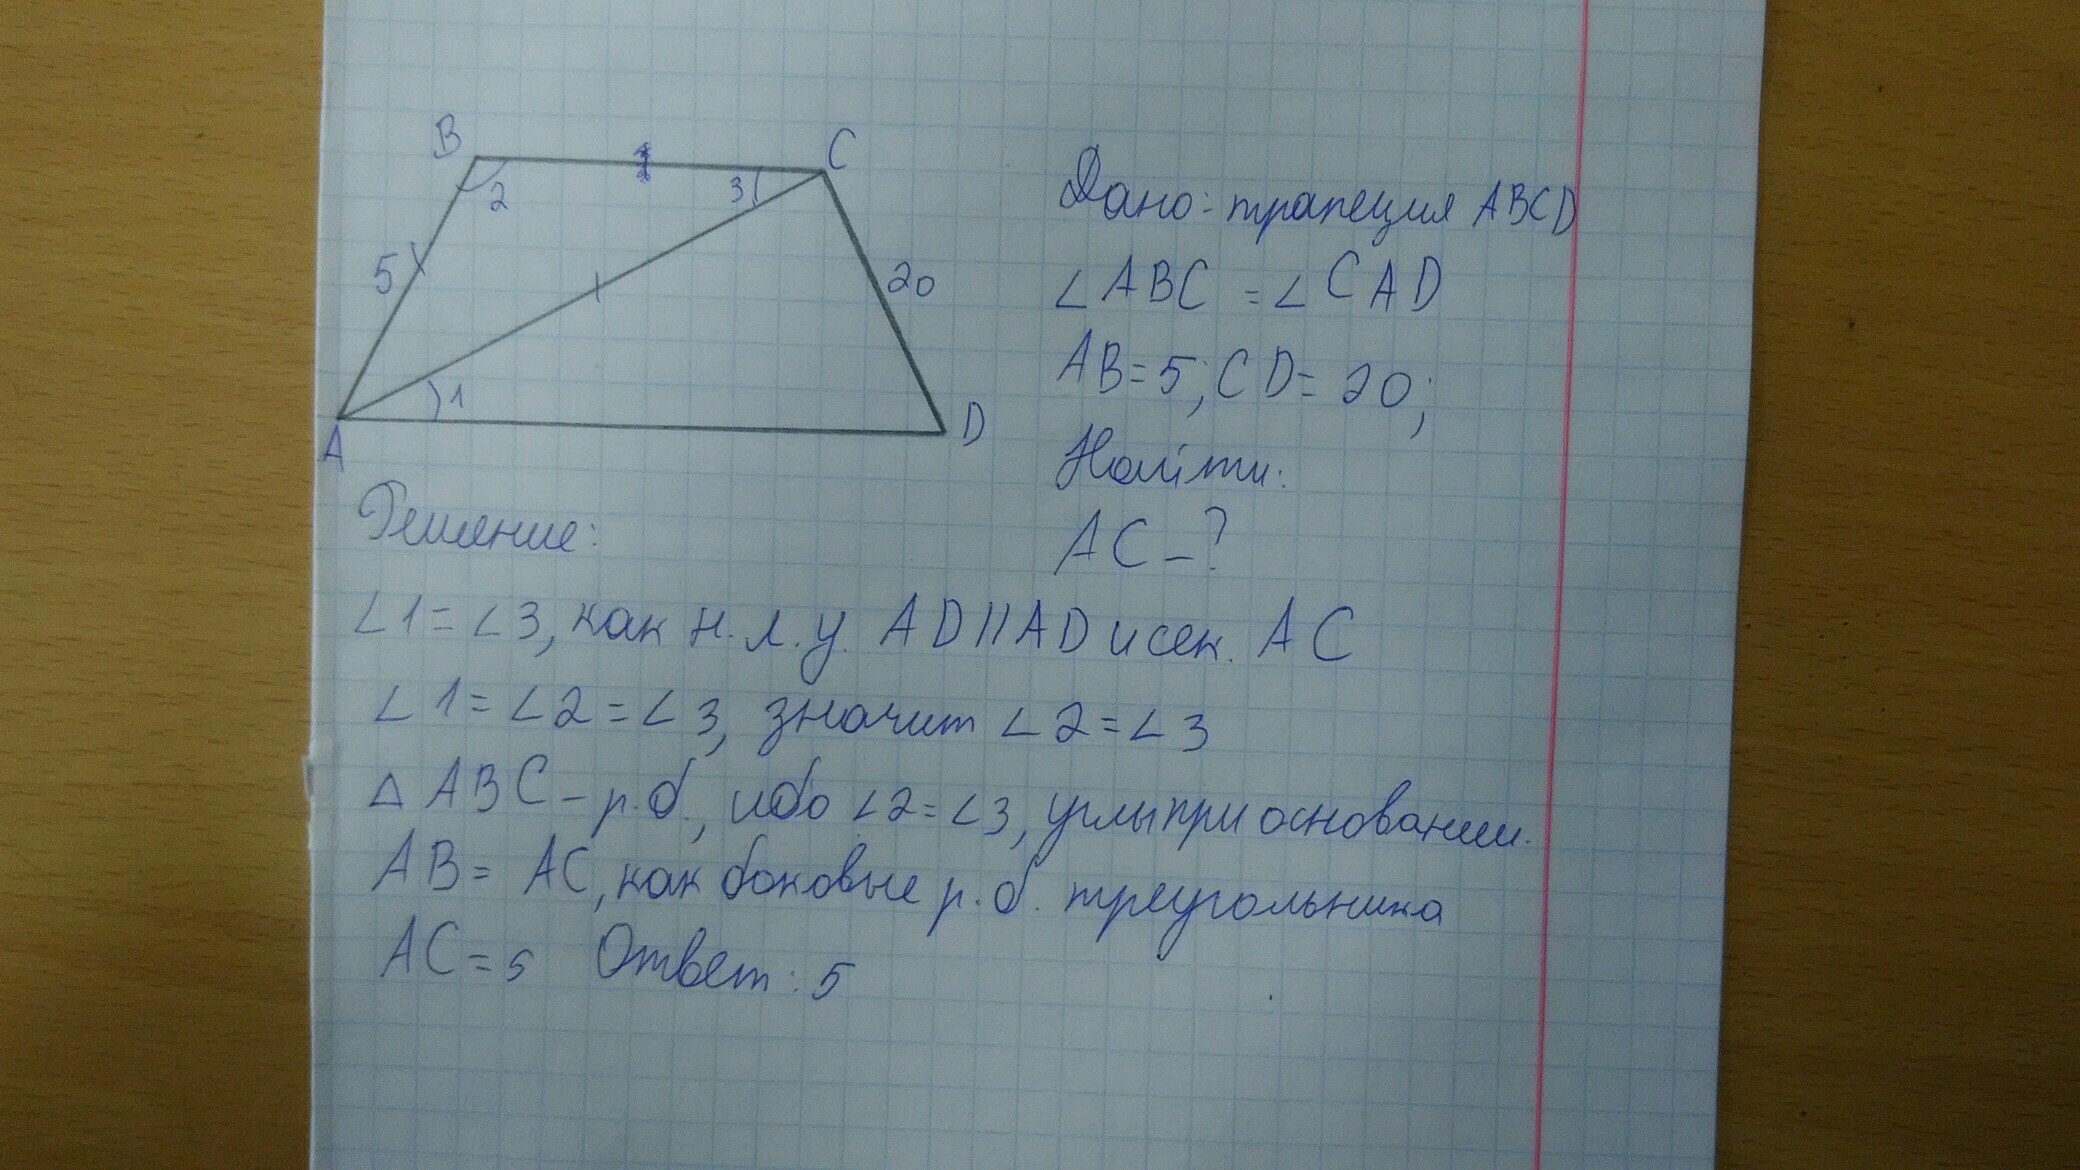 B
C
2
3
5
20
1
A
D
Дано: трапеция ABCD
∠ABC = ∠CAD
AB=5; CD=20;
Найти:
AC-?
Решение:
∠1=∠3, как н.л.у. AD||AD и сек. AC
∠1=∠2=∠3, значит ∠2=∠3
△ABC-р.б., ибо ∠2=∠3, углы при основании.
AB= AC, как боковые р.б. треугольника
AC=5 Ответ: 5